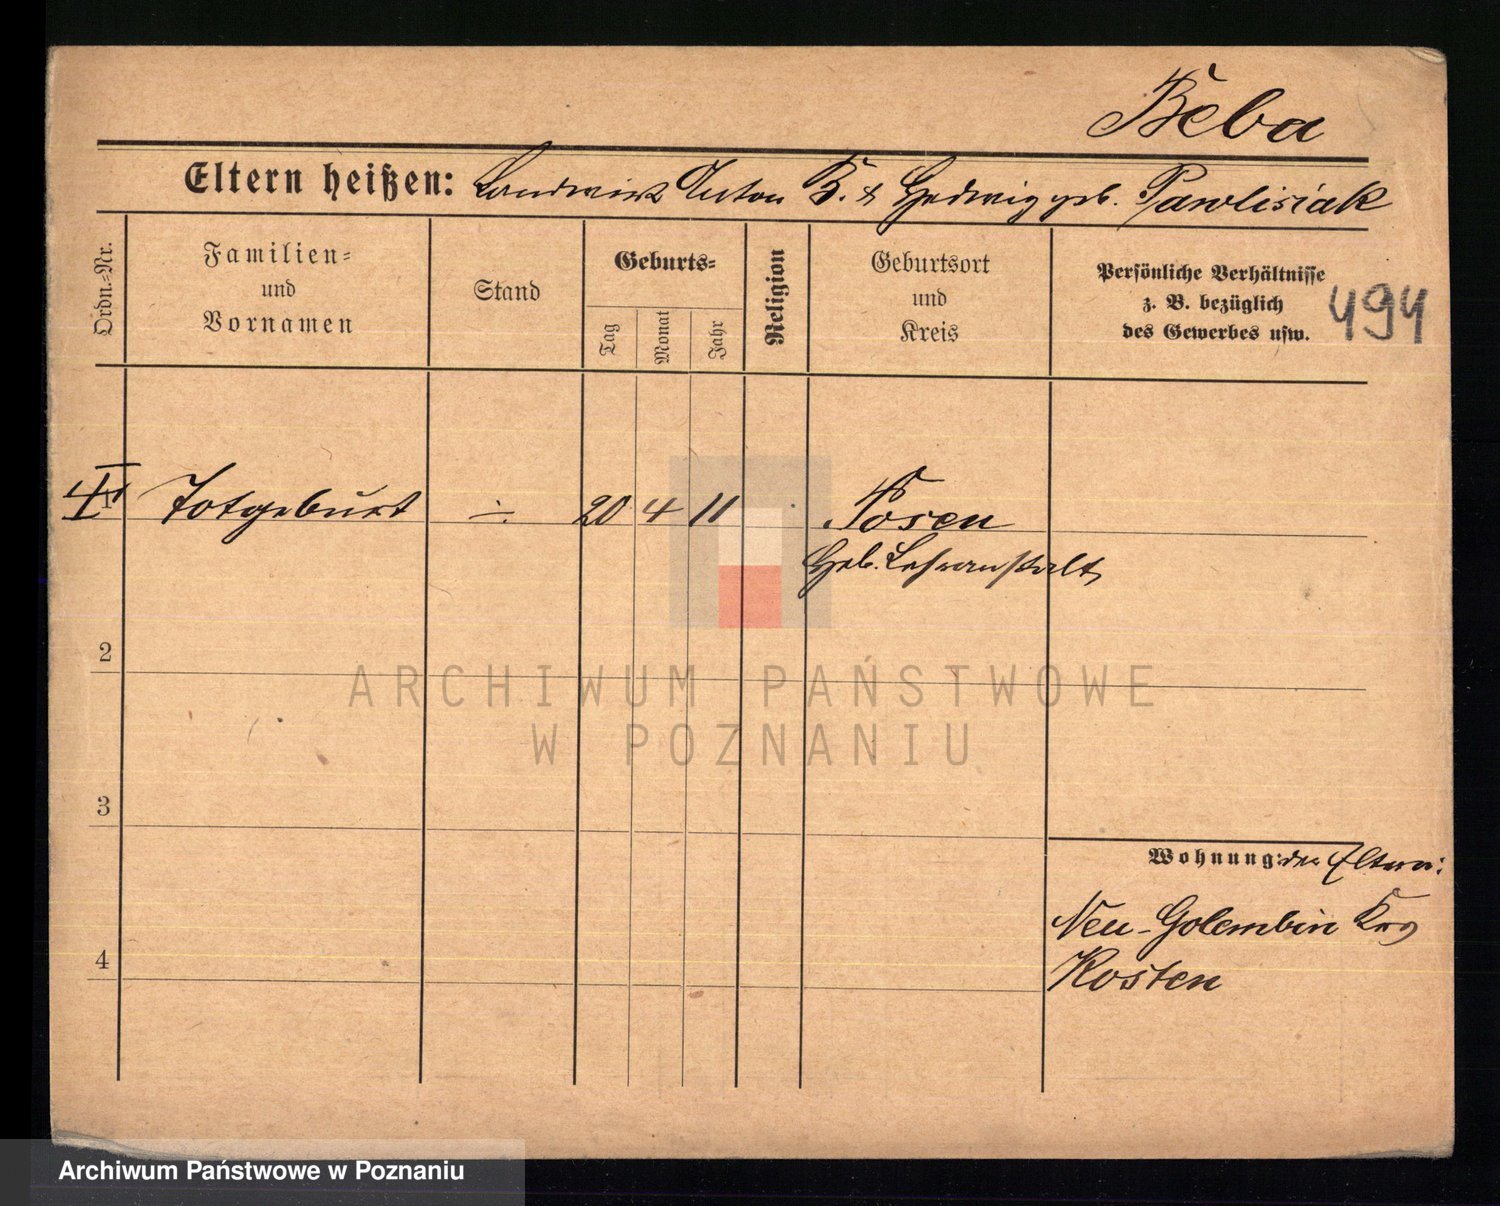 Beba
Eltern heißen: Landwirt Anton B. & Hedwig geb. Pawlisiak
Ordn.-Nr.
Familien-
und
Vornamen
Stand
Geburts-
Tag
Monat
Jahr
Religion
Geburtsort
und
Kreis
Persönliche Verhältnisse
z. B. bezüglich
des Gewerbes usw.
494
Totgeburt ÷ 20 4 11 Posen
Heb. Lehranstalt
2
3
4
Wohnung: der Eltern:
Neu-Golembin Krs
Kosten
ARCHIWUM PAŃSTWOWE
W POZNANIU
Archiwum Państwowe w Poznaniu